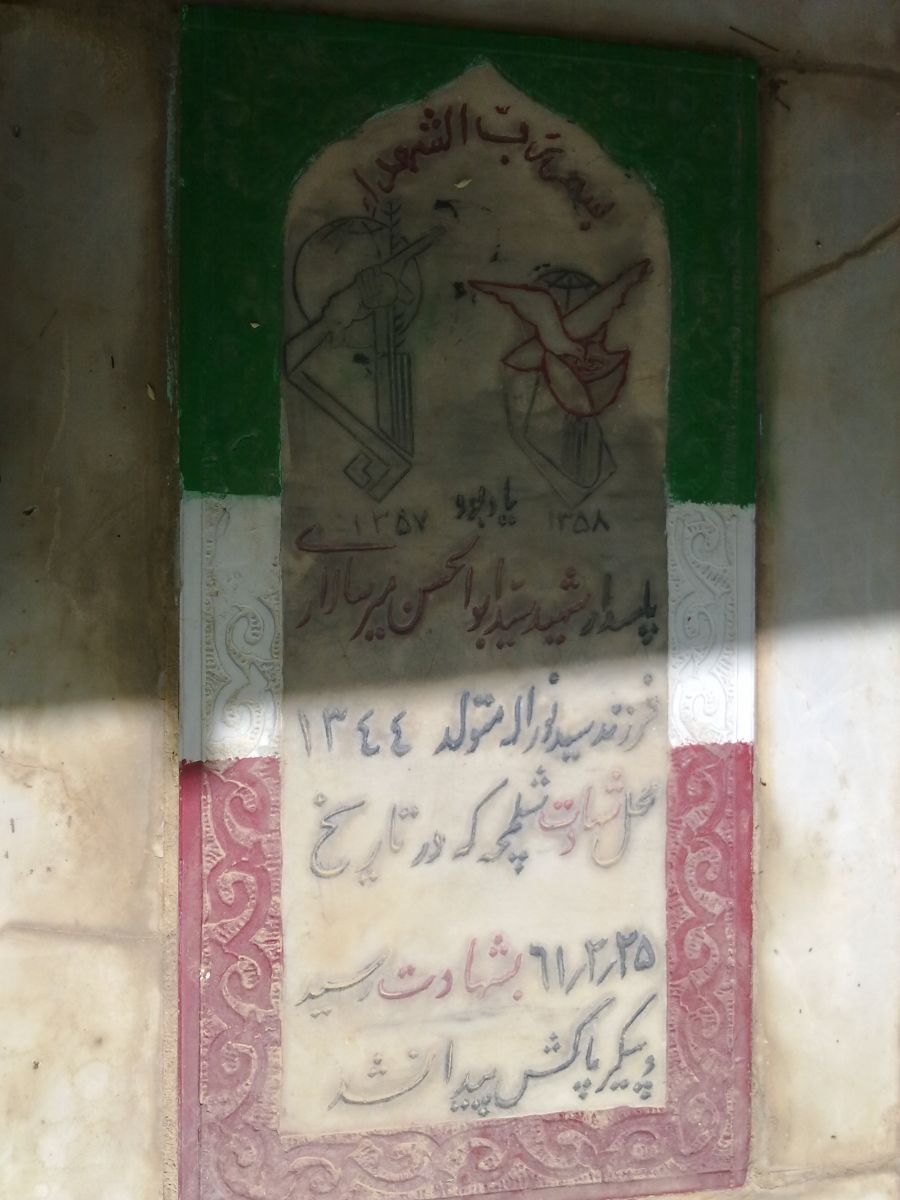 بسم رب الشهداء
۱۳۵۷ یادبود ۱۳۵۸
پاسدار شهید سید ابوالحسن میرسالاری
فرزند سید نوراله متولد ۱۳۴۴
محل شهادت شلمچه که در تاریخ
۶۱/۳/۲۵ بشهادت رسید
و پیکر پاکش پیدا نشد